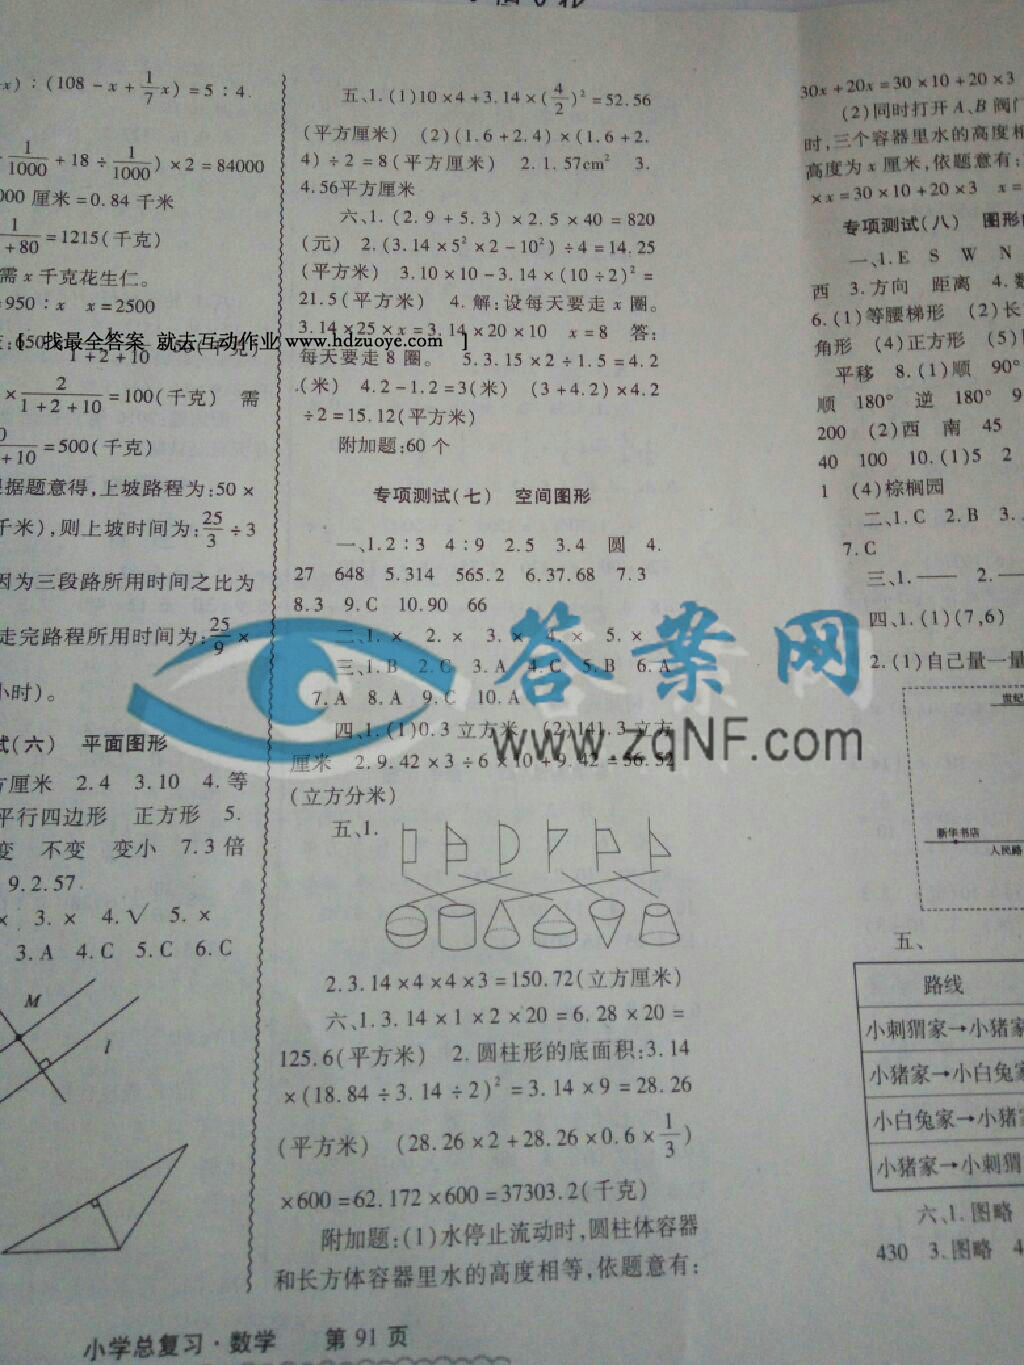 x) : (108 - x + 1/7 x) = 5 : 4.
1/1000 + 18 ÷ 1/1000) × 2 = 84000
000 厘米 = 0.84 千米
1/+80 = 1215(千克)
需 x 千克花生仁。
950 : x x = 2500
[ 找最全答案 就去互动作业 www.hdzuoye.com ]
× 2/(1+2+10) = 100(千克) 需
+10 = 500(千克)
根据题意得,上坡路程为:50 ×
千米),则上坡时间为:25/3 ÷ 3
因为三段路所用时间之比为
走完路程所用时间为:25/9 ×
小时)。
试(六) 平面图形
方厘米 2.4 3.10 4.等
平行四边形 正方形 5.
变 不变 变小 7.3 倍
9.2.57.
× 3.× 4.√ 5.×
3.A 4.C 5.C 6.C
M
l
五、1.(1)10×4+3.14×(4/2)²=52.56
(平方厘米) (2)(1.6+2.4)×(1.6+2.
4)÷2=8(平方厘米) 2.1.57cm² 3.
4.56平方厘米
六、1.(2.9+5.3)×2.5×40=820
(元) 2.(3.14×5²×2-10²)÷4=14.25
(平方米) 3.10×10-3.14×(10÷2)²=
21.5(平方米) 4.解:设每天要走 x 圈。
3.14×25×x=3.14×20×10 x=8 答:
每天要走 8 圈。 5.3.15×2÷1.5=4.2
(米) 4.2-1.2=3(米) (3+4.2)×4.2
÷2=15.12(平方米)
附加题:60 个
专项测试(七) 空间图形
一、1.2:3 4:9 2.5 3.4 圆 4.
27 648 5.314 565.2 6.37.68 7.3
8.3 9.C 10.90 66
二、1.× 2.× 3.× 4.× 5.×
三、1.B 2.C 3.A 4.C 5.B 6.A
7.A 8.A 9.C 10.A
四、1.(1)0.3 立方米 (2)141.3 立方
厘米 2.9.42×3÷6×10+9.42=56.52
(立方分米)
五、1.
2.3.14×4×4×3=150.72(立方厘米)
六、1.3.14×1×2×20=6.28×20=
125.6(平方米) 2.圆柱形的底面积:3.14
×(18.84÷3.14÷2)²=3.14×9=28.26
(平方米) (28.26×2+28.26×0.6×1/3)
×600=62.172×600=37303.2(千克)
附加题:(1)水停止流动时,圆柱体容器
和长方体容器里水的高度相等,依题意有:
答案网
www.zqNF.com
30x+20x=30×10+20×3
(2)同时打开 A、B 阀门
时,三个容器里水的高度相
高度为 x 厘米,依题意有:
×x=30×10+20×3 x=
专项测试(八) 图形
一、1.E S W N
西 3.方向 距离 4.数
6.(1)等腰梯形 (2)长
角形 (4)正方形 (5)
平移 8.(1)顺 90°
顺 180° 逆 180° 9
200 (2)西 南 45
40 100 10.(1)5 2
1 (4)棕榈园
二、1.C 2.B 3.
7.C
三、1.—— 2.——
四、1.(1)(7,6)
2.(1)自己量一量
世纪
新华书店
人民路
五、
路线
小刺猬家→小猪家
小猪家→小白兔家
小白兔家→小猪
小猪家→小刺猬
六、1.图略
430 3.图略 4
小学总复习·数学 第 91 页